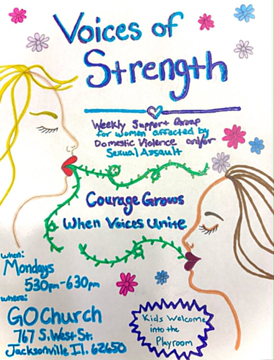 Voices of
Strength
Weekly Support Group
for women affected by
Domestic Violence and/or
Sexual Assault
Courage Grows
When Voices Unite
when:
Mondays
530pm-630pm
where:
GO Church
767 S. West St.
Jacksonville Il. 62650
Kids Welcome
into the
Playroom